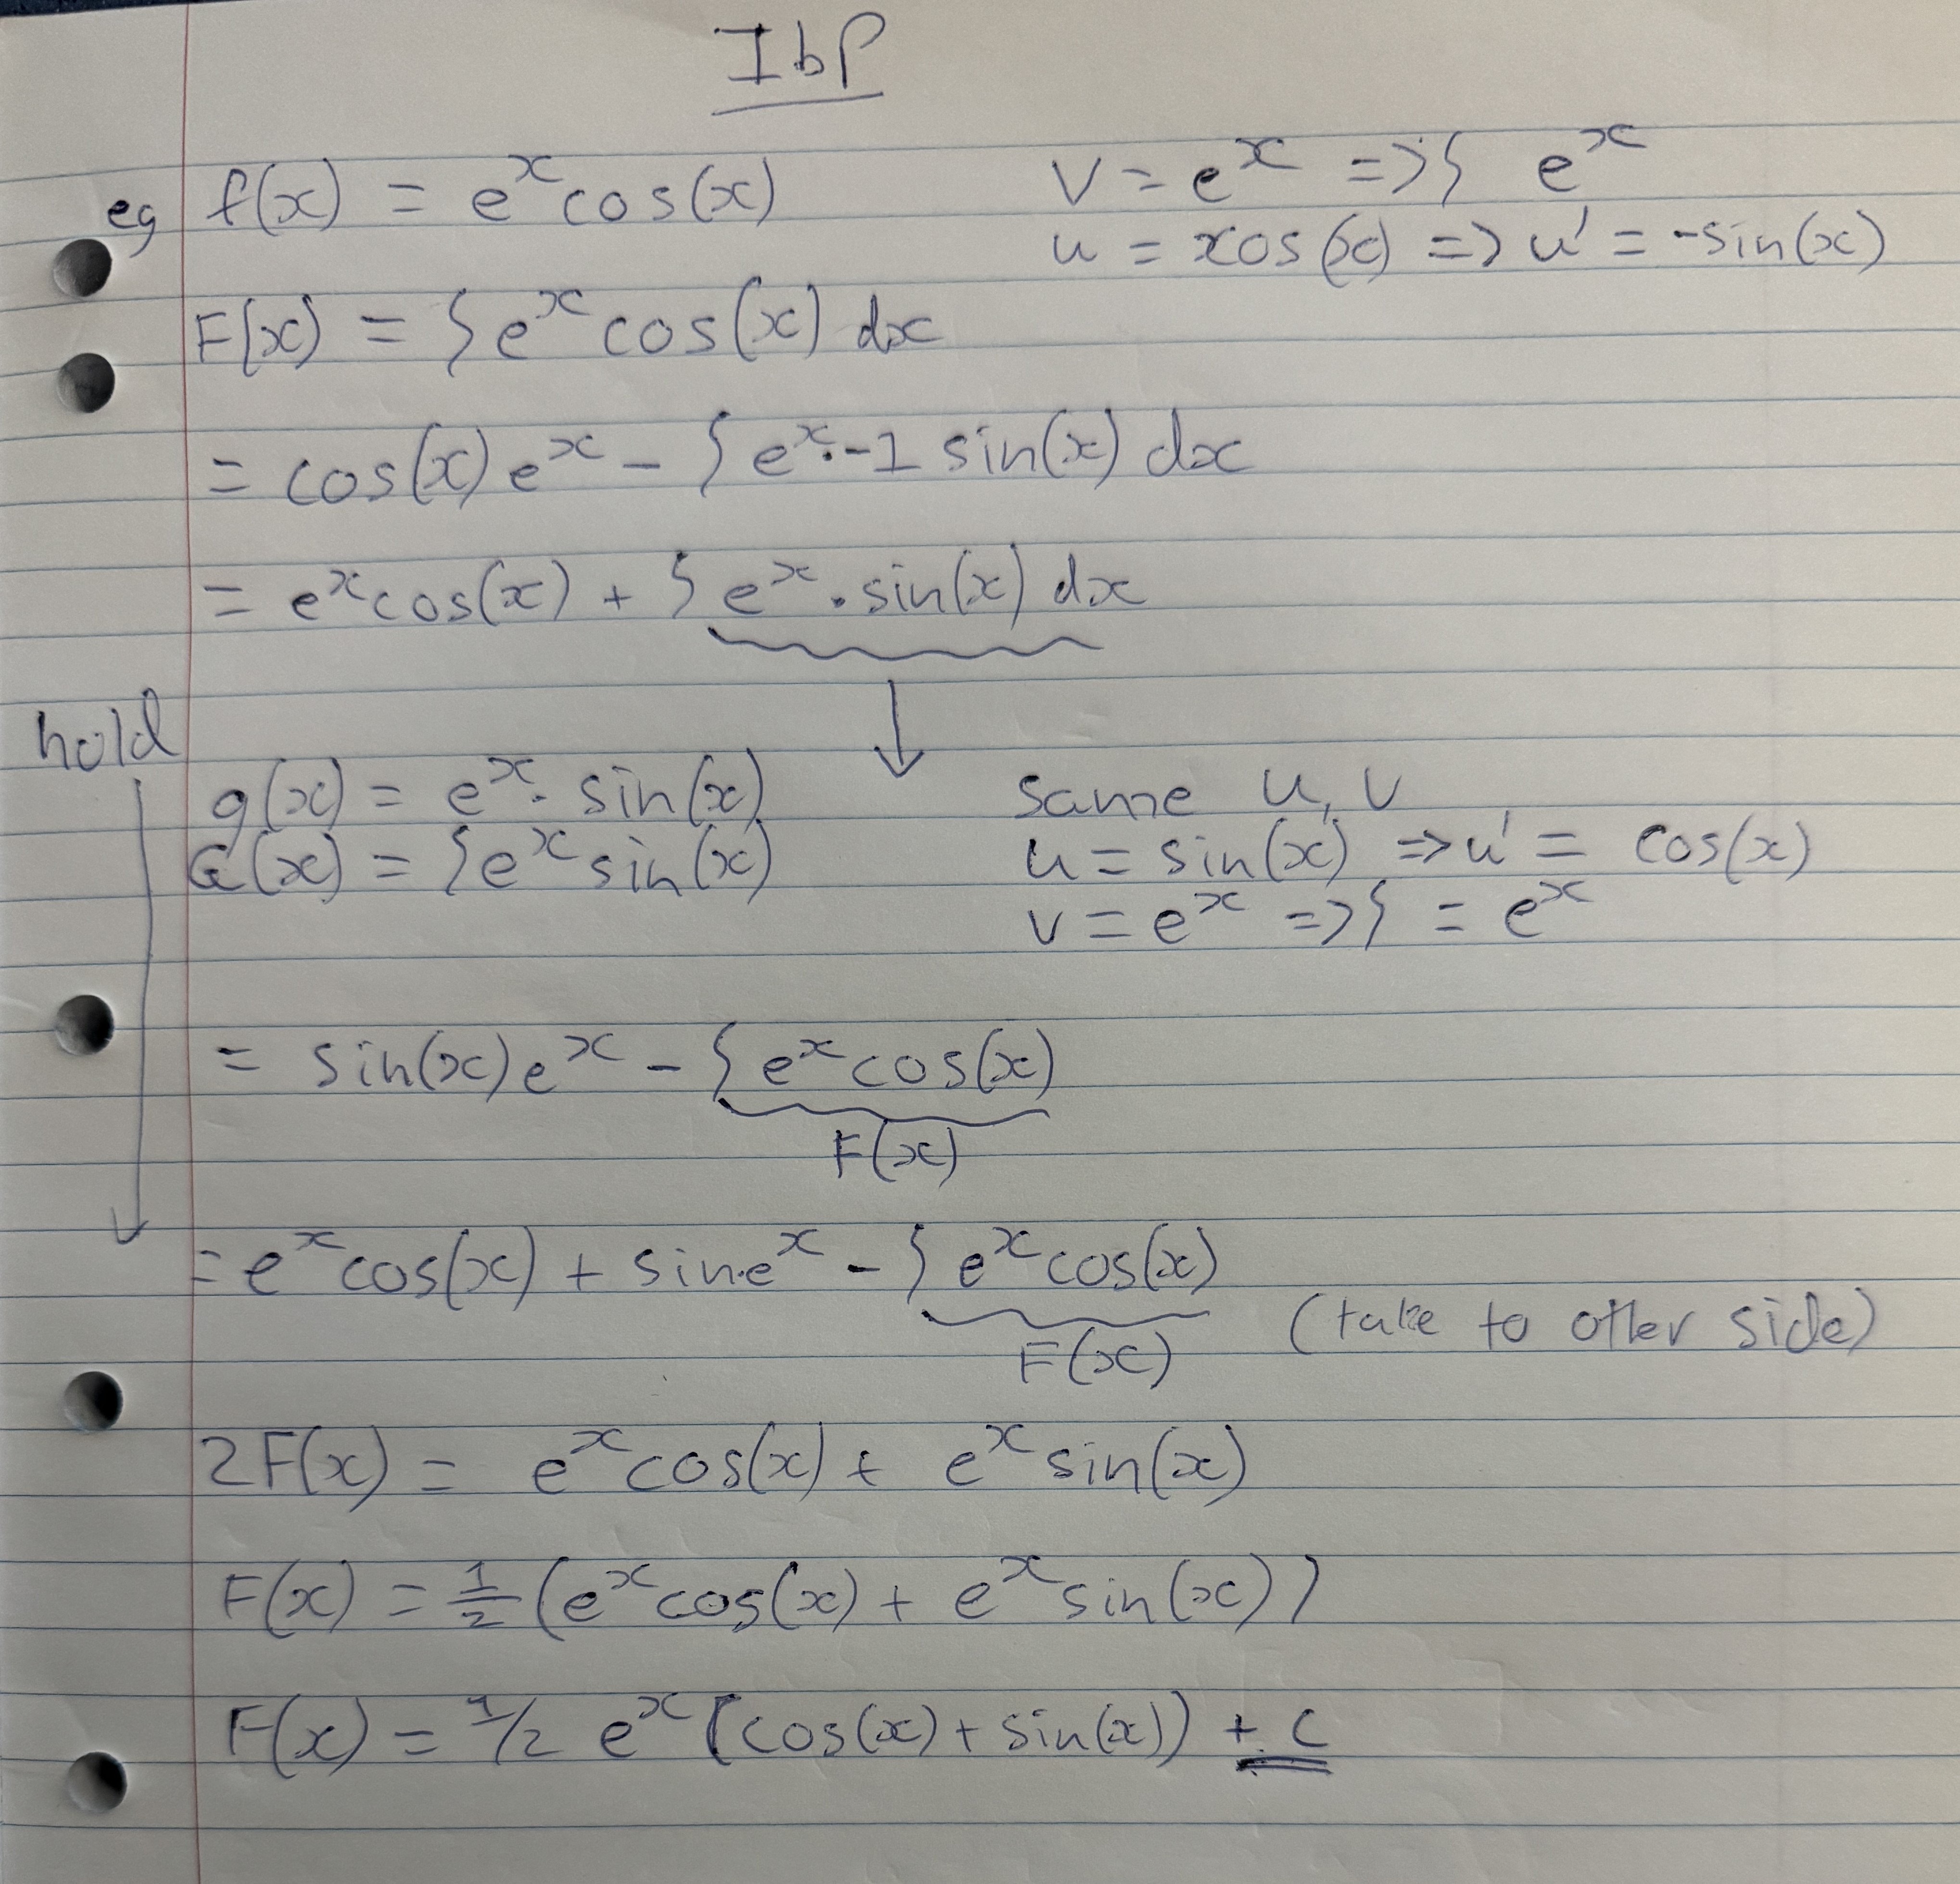 IbP
eg f(x) = e^x cos(x)
v = e^x => ∫ e^x
u = xos(x) => u' = -sin(x)
F(x) = ∫ e^x cos(x) dx
= cos(x) e^x - ∫ e^x · -1 sin(x) dx
= e^x cos(x) + ∫ e^x · sin(x) dx
hold
g(x) = e^x · sin(x)
same u, v
G(x) = ∫ e^x sin(x)
u = sin(x) => u' = cos(x)
v = e^x => ∫ = e^x
= sin(x) e^x - ∫ e^x cos(x)
F(x)
= e^x cos(x) + sin·e^x - ∫ e^x cos(x)
F(x)
(take to other side)
2F(x) = e^x cos(x) + e^x sin(x)
F(x) = 1/2 (e^x cos(x) + e^x sin(x))
F(x) = 1/2 e^x (cos(x) + sin(x)) + c